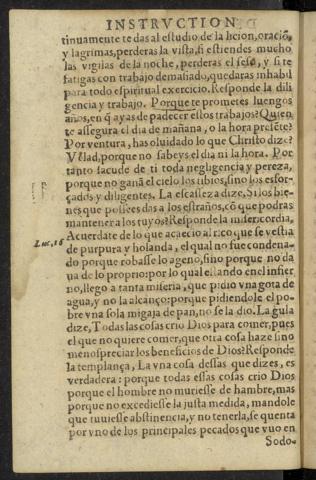 INSTRVCTION
tinuamente te das al estudio de la licion, oraciõ,
y lagrimas, perderas la vista, si estiendes mucho
las vigilas de la noche, perderas el seso, y si te
fatigas con trabajo demasiado, quedaras inhabil
para todo espiritual exercicio. Responde la dili
gencia y trabajo. Porque te prometes luengos
años, en q̃ ayas de padecer estos trabajos? Quien
te assegura el dia de mañana, o la hora presẽte?
Por ventura, has oluidado lo que Christo dize?
Velad, porque no sabeys el dia ni la hora. Por
tanto sacude de ti toda negligencia y pereza,
porque no ganã el cielo los tibios, sino los esfor-
çados y diligentes. La escaseza dize, Si los bie-
nes que possees das a los estraños, cõ que podras
mantener a los tuyos? Responde la misericordia,
Luc. 16
Acuerdate de lo que acaecio al rico que se vestia
de purpura y holanda, el qual no fue condena-
do porque robasse lo ageno, sino porque no da
ua de lo proprio: por lo qual estando en el infier
no, llego a tanta miseria, que pidio vna gota de
agua, y no la alcanço: porque pidiendole el po-
bre vna sola migaja de pan, no se la dio. La gula
dize, Todas las cosas crio Dios para comer, pues
el que no quiere comer, que otra cosa haze sino
menospreciar los beneficios de Dios? Responde
la templança, La vna cosa dessas que dizes, es
verdadera: porque todas essas cosas crio Dios
porque el hombre no muriesse de hambre, mas
porque no excediesse la justa medida, mandole
que tuuiesse abstinencia, y no tenerla, se quenta
por vno de los principales pecados que vuo en
Sodo-